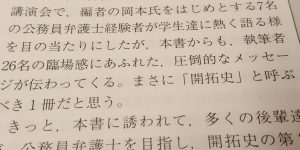 講演会で，編者の岡本氏をはじめとする7名
の公務員弁護士経験者が学生達に熱く語る様
を目の当たりにしたが，本書からも，執筆者
26名の臨場感にあふれた，圧倒的なメッセー
ジが伝わってくる。まさに「開拓史」と呼ぶ
べき1冊だと思う。
きっと，本書に誘われて，多くの後輩達
公務員弁護士を目指し，開拓史の第